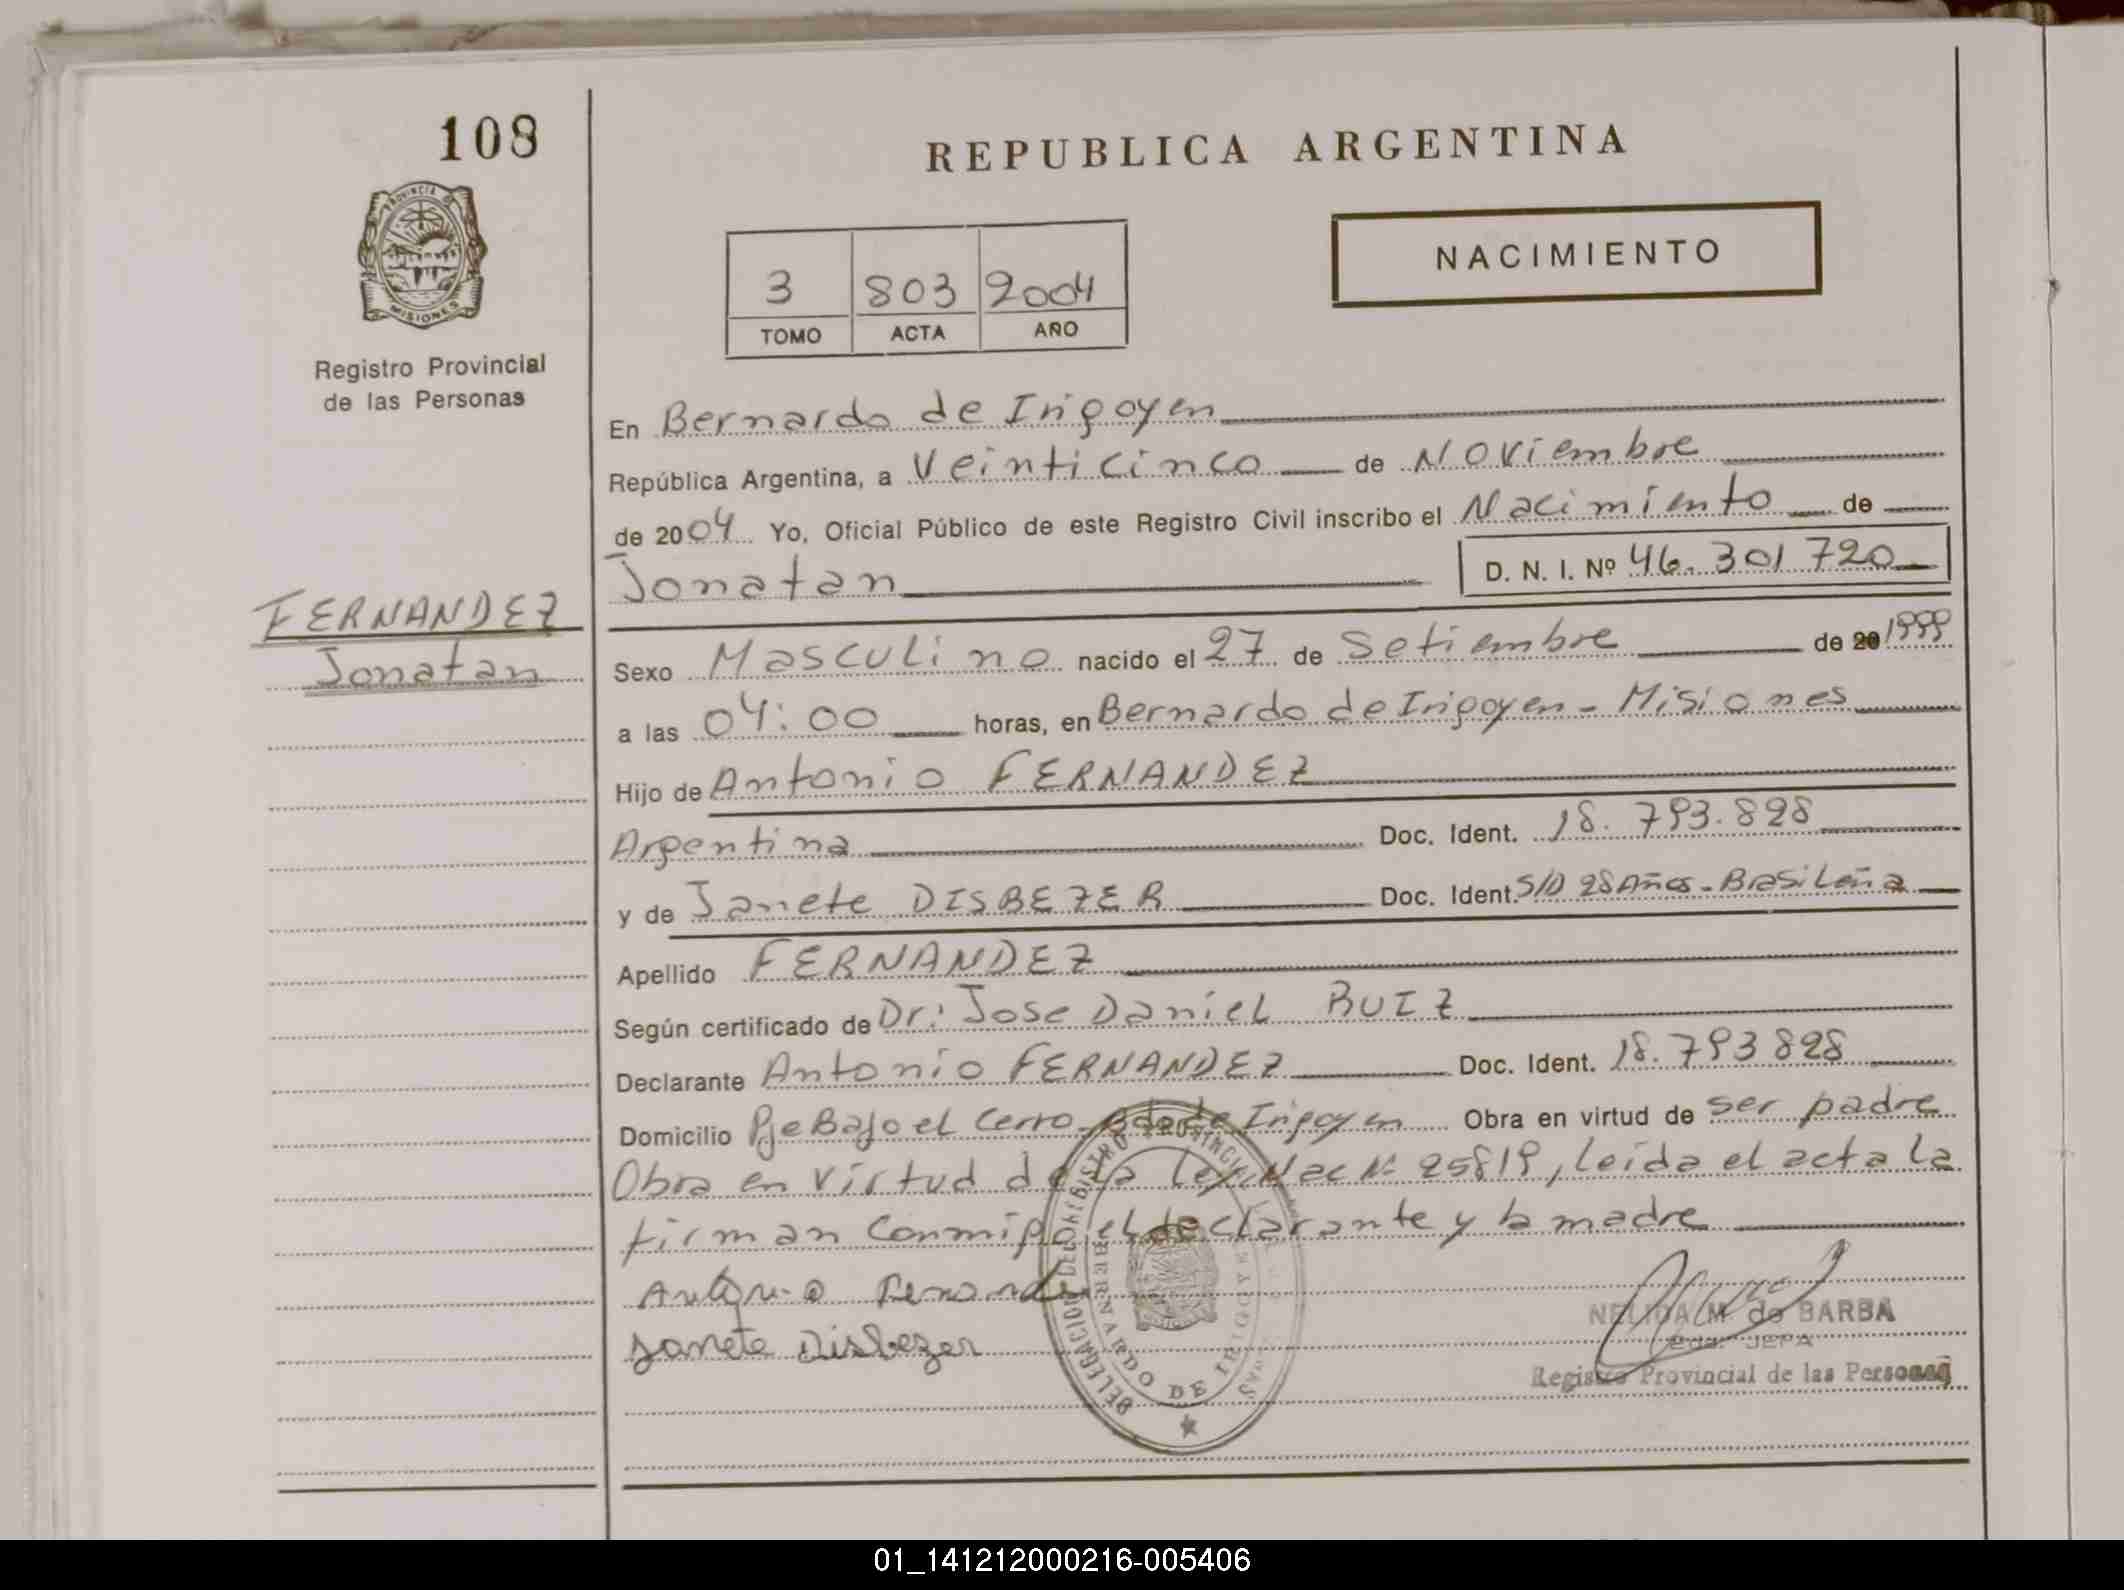 108
REPUBLICA ARGENTINA
PROVINCIA DE
MISIONES
Registro Provincial
de las Personas
NACIMIENTO
3 803 2004
TOMO ACTA AÑO
En Bernardo de Irigoyen
República Argentina, a Veinticinco de Noviembre
de 2004 Yo, Oficial Público de este Registro Civil inscribo el Nacimiento de
Jonatan D. N. I. Nº 46.301720
FERNANDEZ
Jonatan
Sexo Masculino nacido el 27 de Setiembre de 20 1999
a las 04:00 horas, en Bernardo de Irigoyen - Misiones
Hijo de Antonio FERNANDEZ
Argentina Doc. Ident. 18.793.828
y de Janete DISBEZER Doc. Ident. S/D 28 Años - Brasileña
Apellido FERNANDEZ
Según certificado de Dr: Jose Daniel RUIZ
Declarante Antonio FERNANDEZ Doc. Ident. 18.793828
Domicilio Pje Bajo el Cerro - Bdo de Irigoyen Obra en virtud de ser padre
Obra en virtud de la Ley Nac Nº 25819, leida el acta la
firman conmigo el declarante y la madre
Antonio Fernandez
Janete Disbezer
DELEGACION DEL REGISTRO PROVINCIAL
BERNARDO DE IRIGOYEN
NELIDA M. de BARBA
JEFA
Registro Provincial de las Personas
01_141212000216-005406